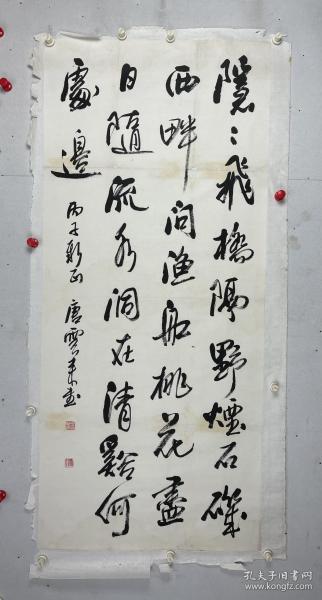 隱〻飛橋隔野煙石磯
西畔問漁船桃花盡
日隨流水洞在清谿何
處邊
丙子新正 唐雲來書
孔夫子旧书网